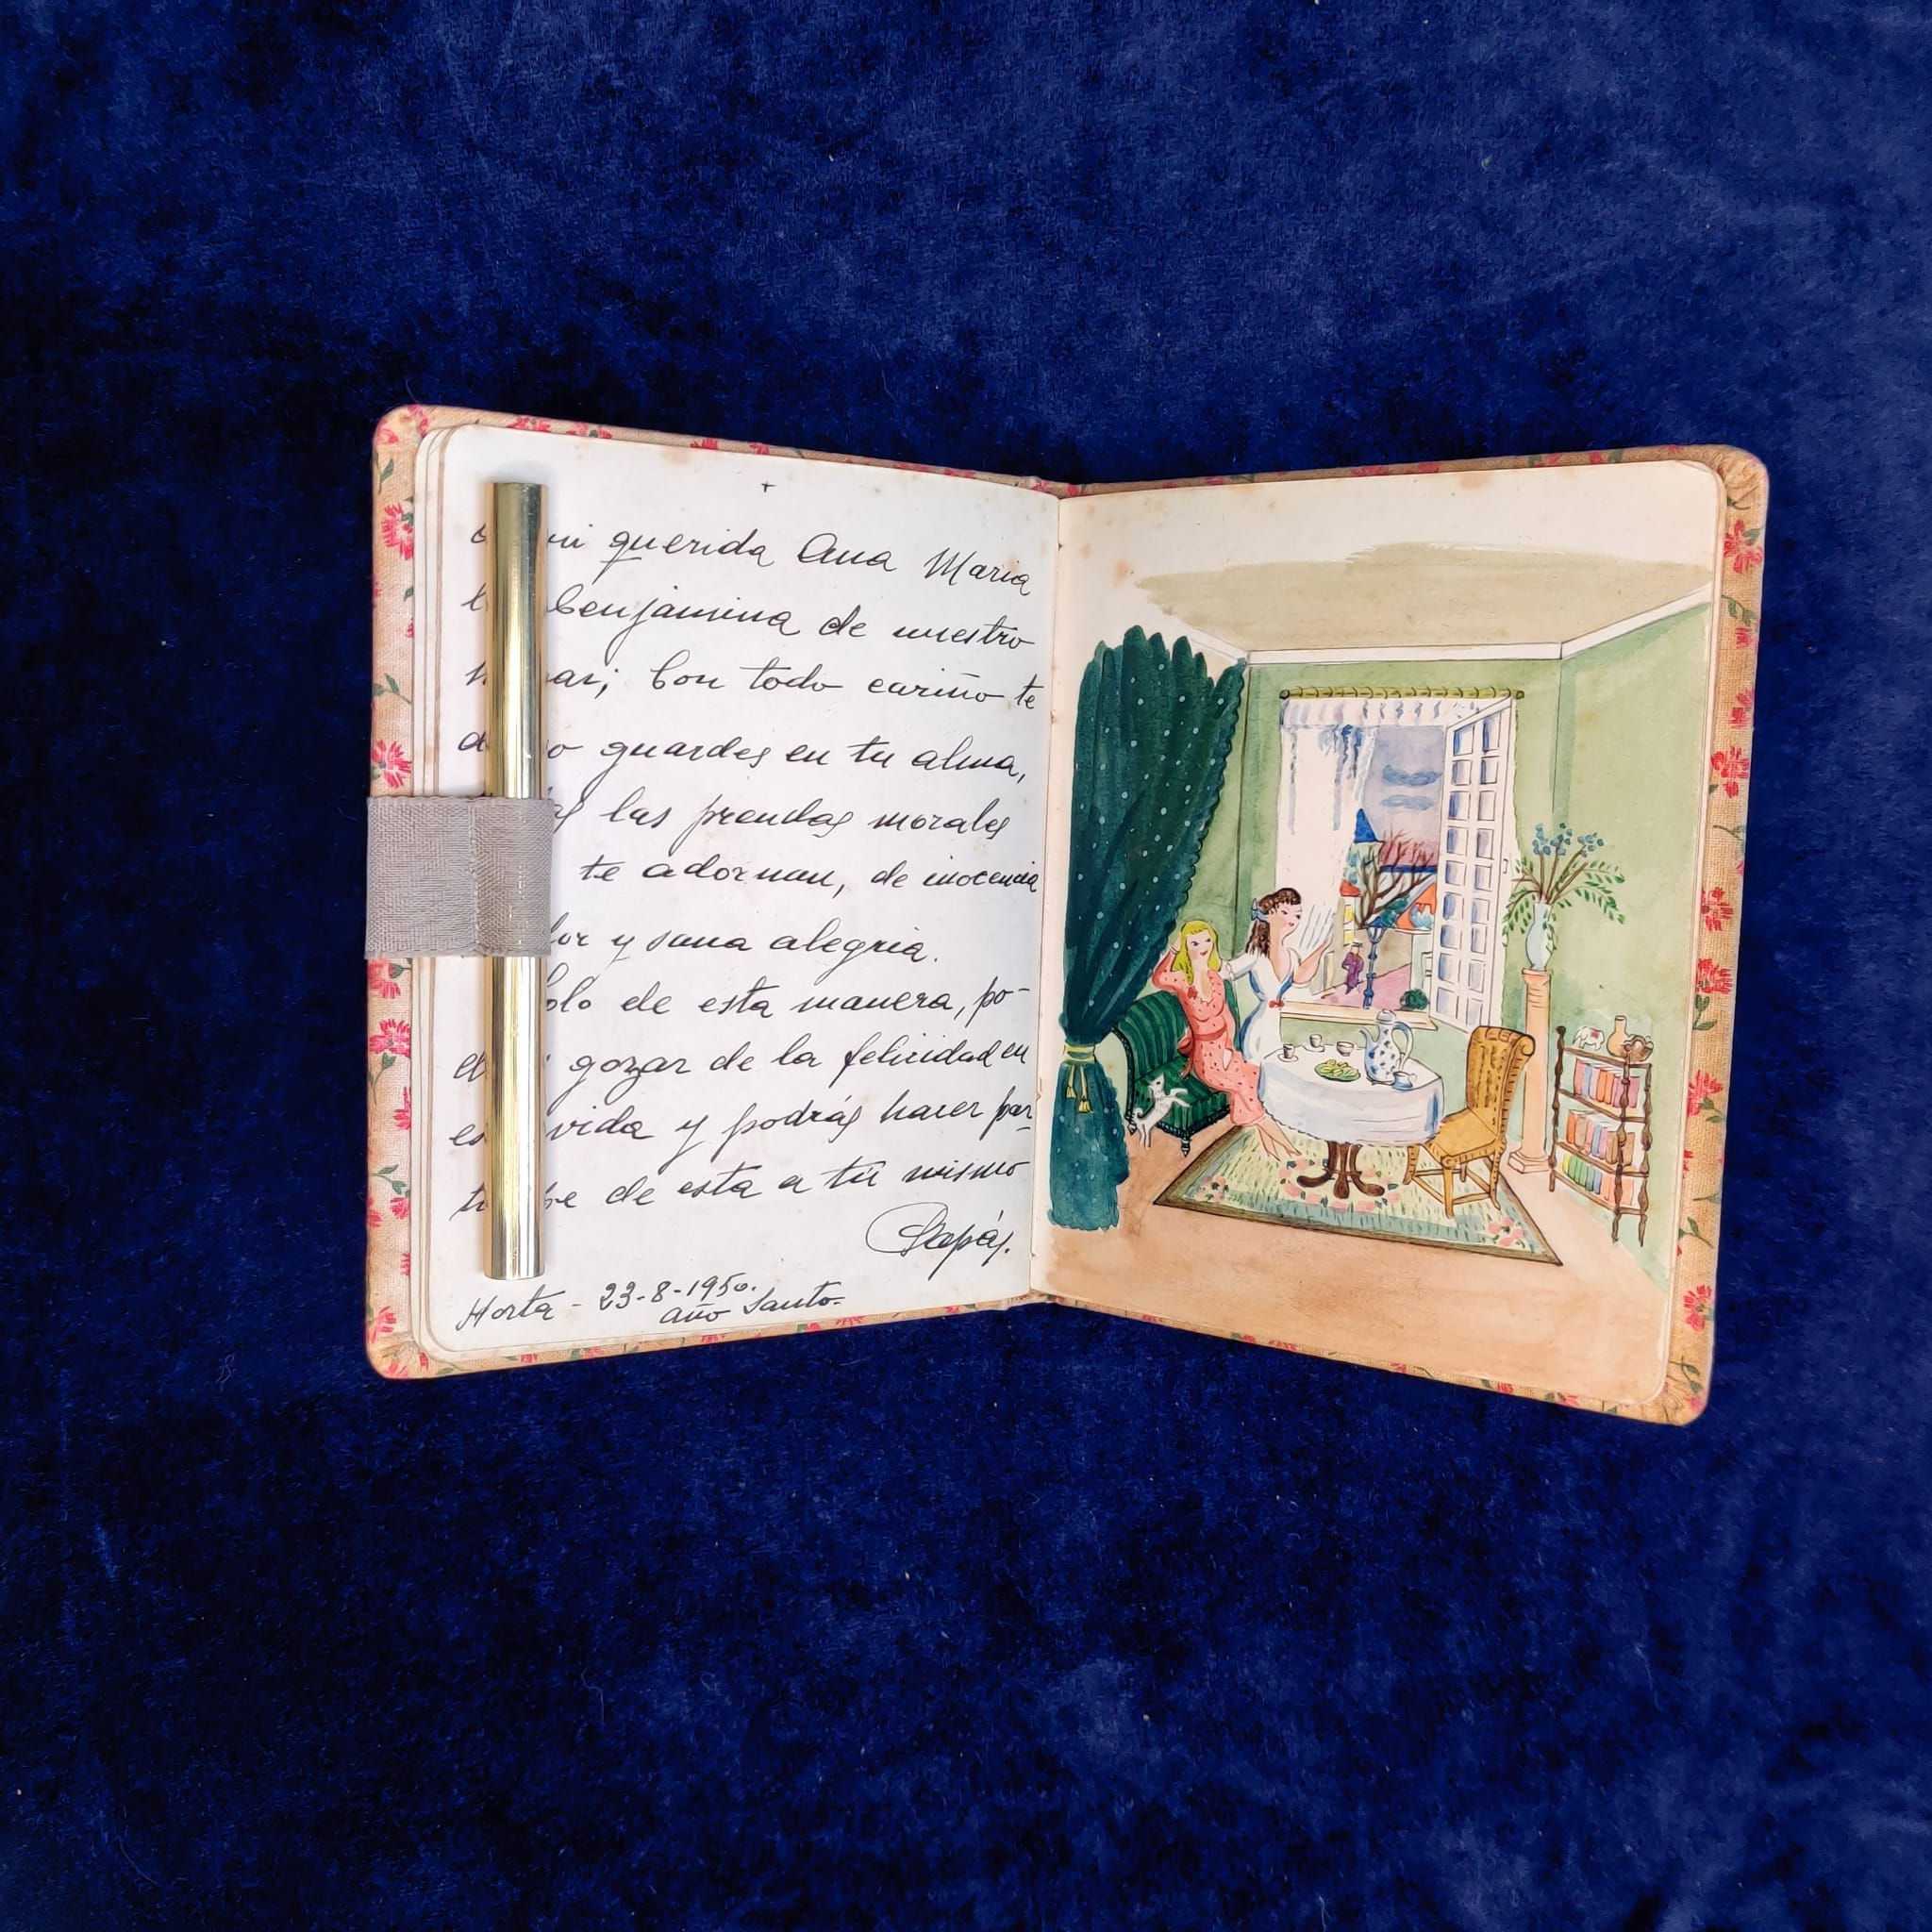 +
mi querida Ana Maria
benjamina de nuestro
Con todo cariño te
guardes en tu alma,
las prendas morales
te adornan, de inocencia
y sana alegria.
de esta manera, po-
gozar de la felicidad en
vida y podrás hacer par-
de esta a tú mismo
Papá.
Horta - 23-8-1950.
año Santo-